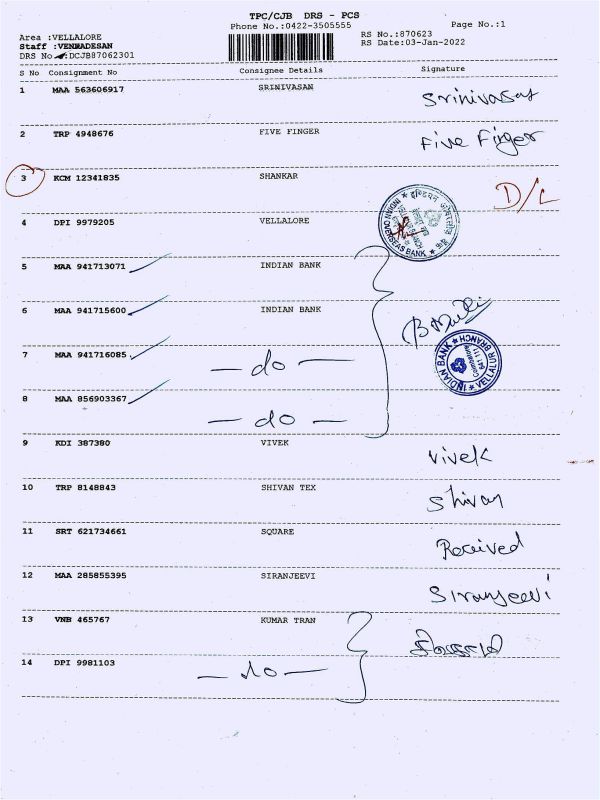 TPC/CJB DRS - PCS
Phone No.:0422-3505555 Page No.:1
Area :VELLALORE RS No.:870623
Staff :VENMADESAN RS Date:03-Jan-2022
DRS No :DCJB87062301
S No Consignment No Consignee Details Signature
1 MAA 563606917 SRINIVASAN Srinivasan
2 TRP 4948676 FIVE FINGER Five Finger
3 KCM 12341835 SHANKAR D/L
4 DPI 9979205 VELLALORE INDIAN OVERSEAS BANK
5 MAA 941713071 INDIAN BANK
6 MAA 941715600 INDIAN BANK
7 MAA 941716085 — do — INDIAN BANK VELLALUR BRANCH Coimbatore 641 111
8 MAA 856903367 — do —
9 KDI 387380 VIVEK Vivek
10 TRP 8148843 SHIVAN TEX Shivan
11 SRT 621734661 SQUARE Received
12 MAA 285855395 SIRANJEEVI Siranjeevi
13 VNB 465767 KUMAR TRAN
14 DPI 9981103 — do —